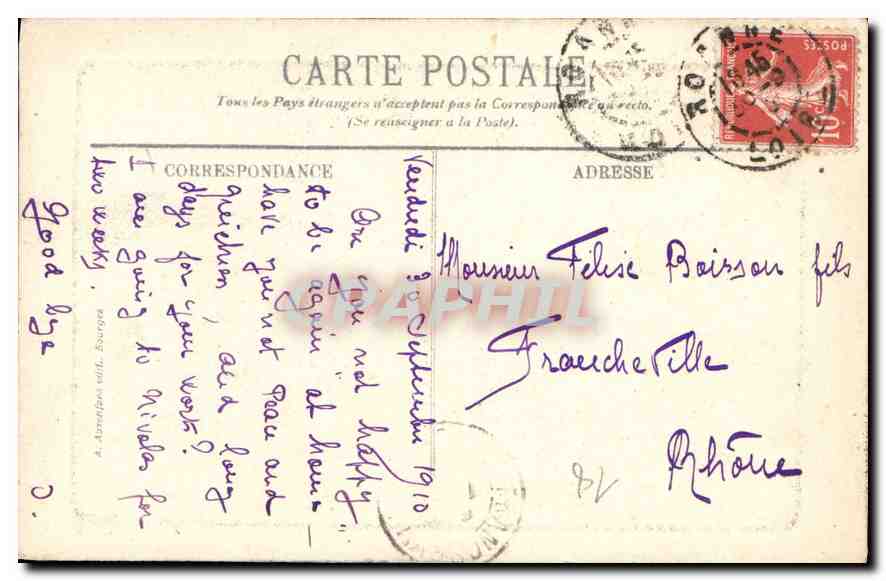 CARTE POSTALE
Tous les Pays étrangers n'acceptent pas la Correspondance au recto.
(Se renseigner à la Poste).
CORRESPONDANCE
ADRESSE
Vendredi 30 Septembre 1910
Are you not happy
to be again "at home"
have you not Peace and
, and long
days for your works?
I am going to for
two weeks.
Good bye
J.
Monsieur Félise Boisson fils
Francheville
Rhône
POSTES
10
ROANNE
LOIRE
CPAPHIL